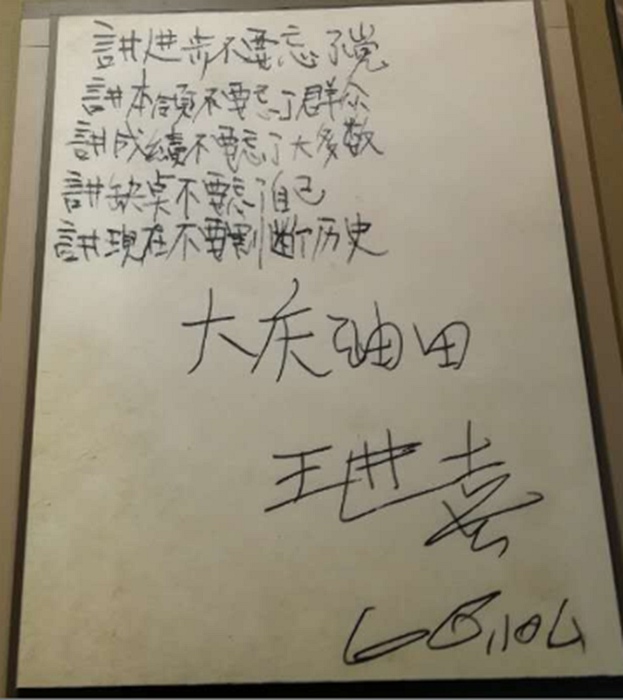 講进步不要忘了党
講本領不要忘了群众
講成績不要忘了大多数
講缺点不要忘了自己
講現在不要割断历史
大庆油田
王进喜